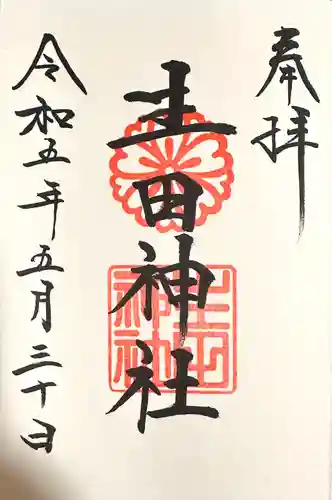 奉拝
生田神社
令和五年五月三十日
生田
神社